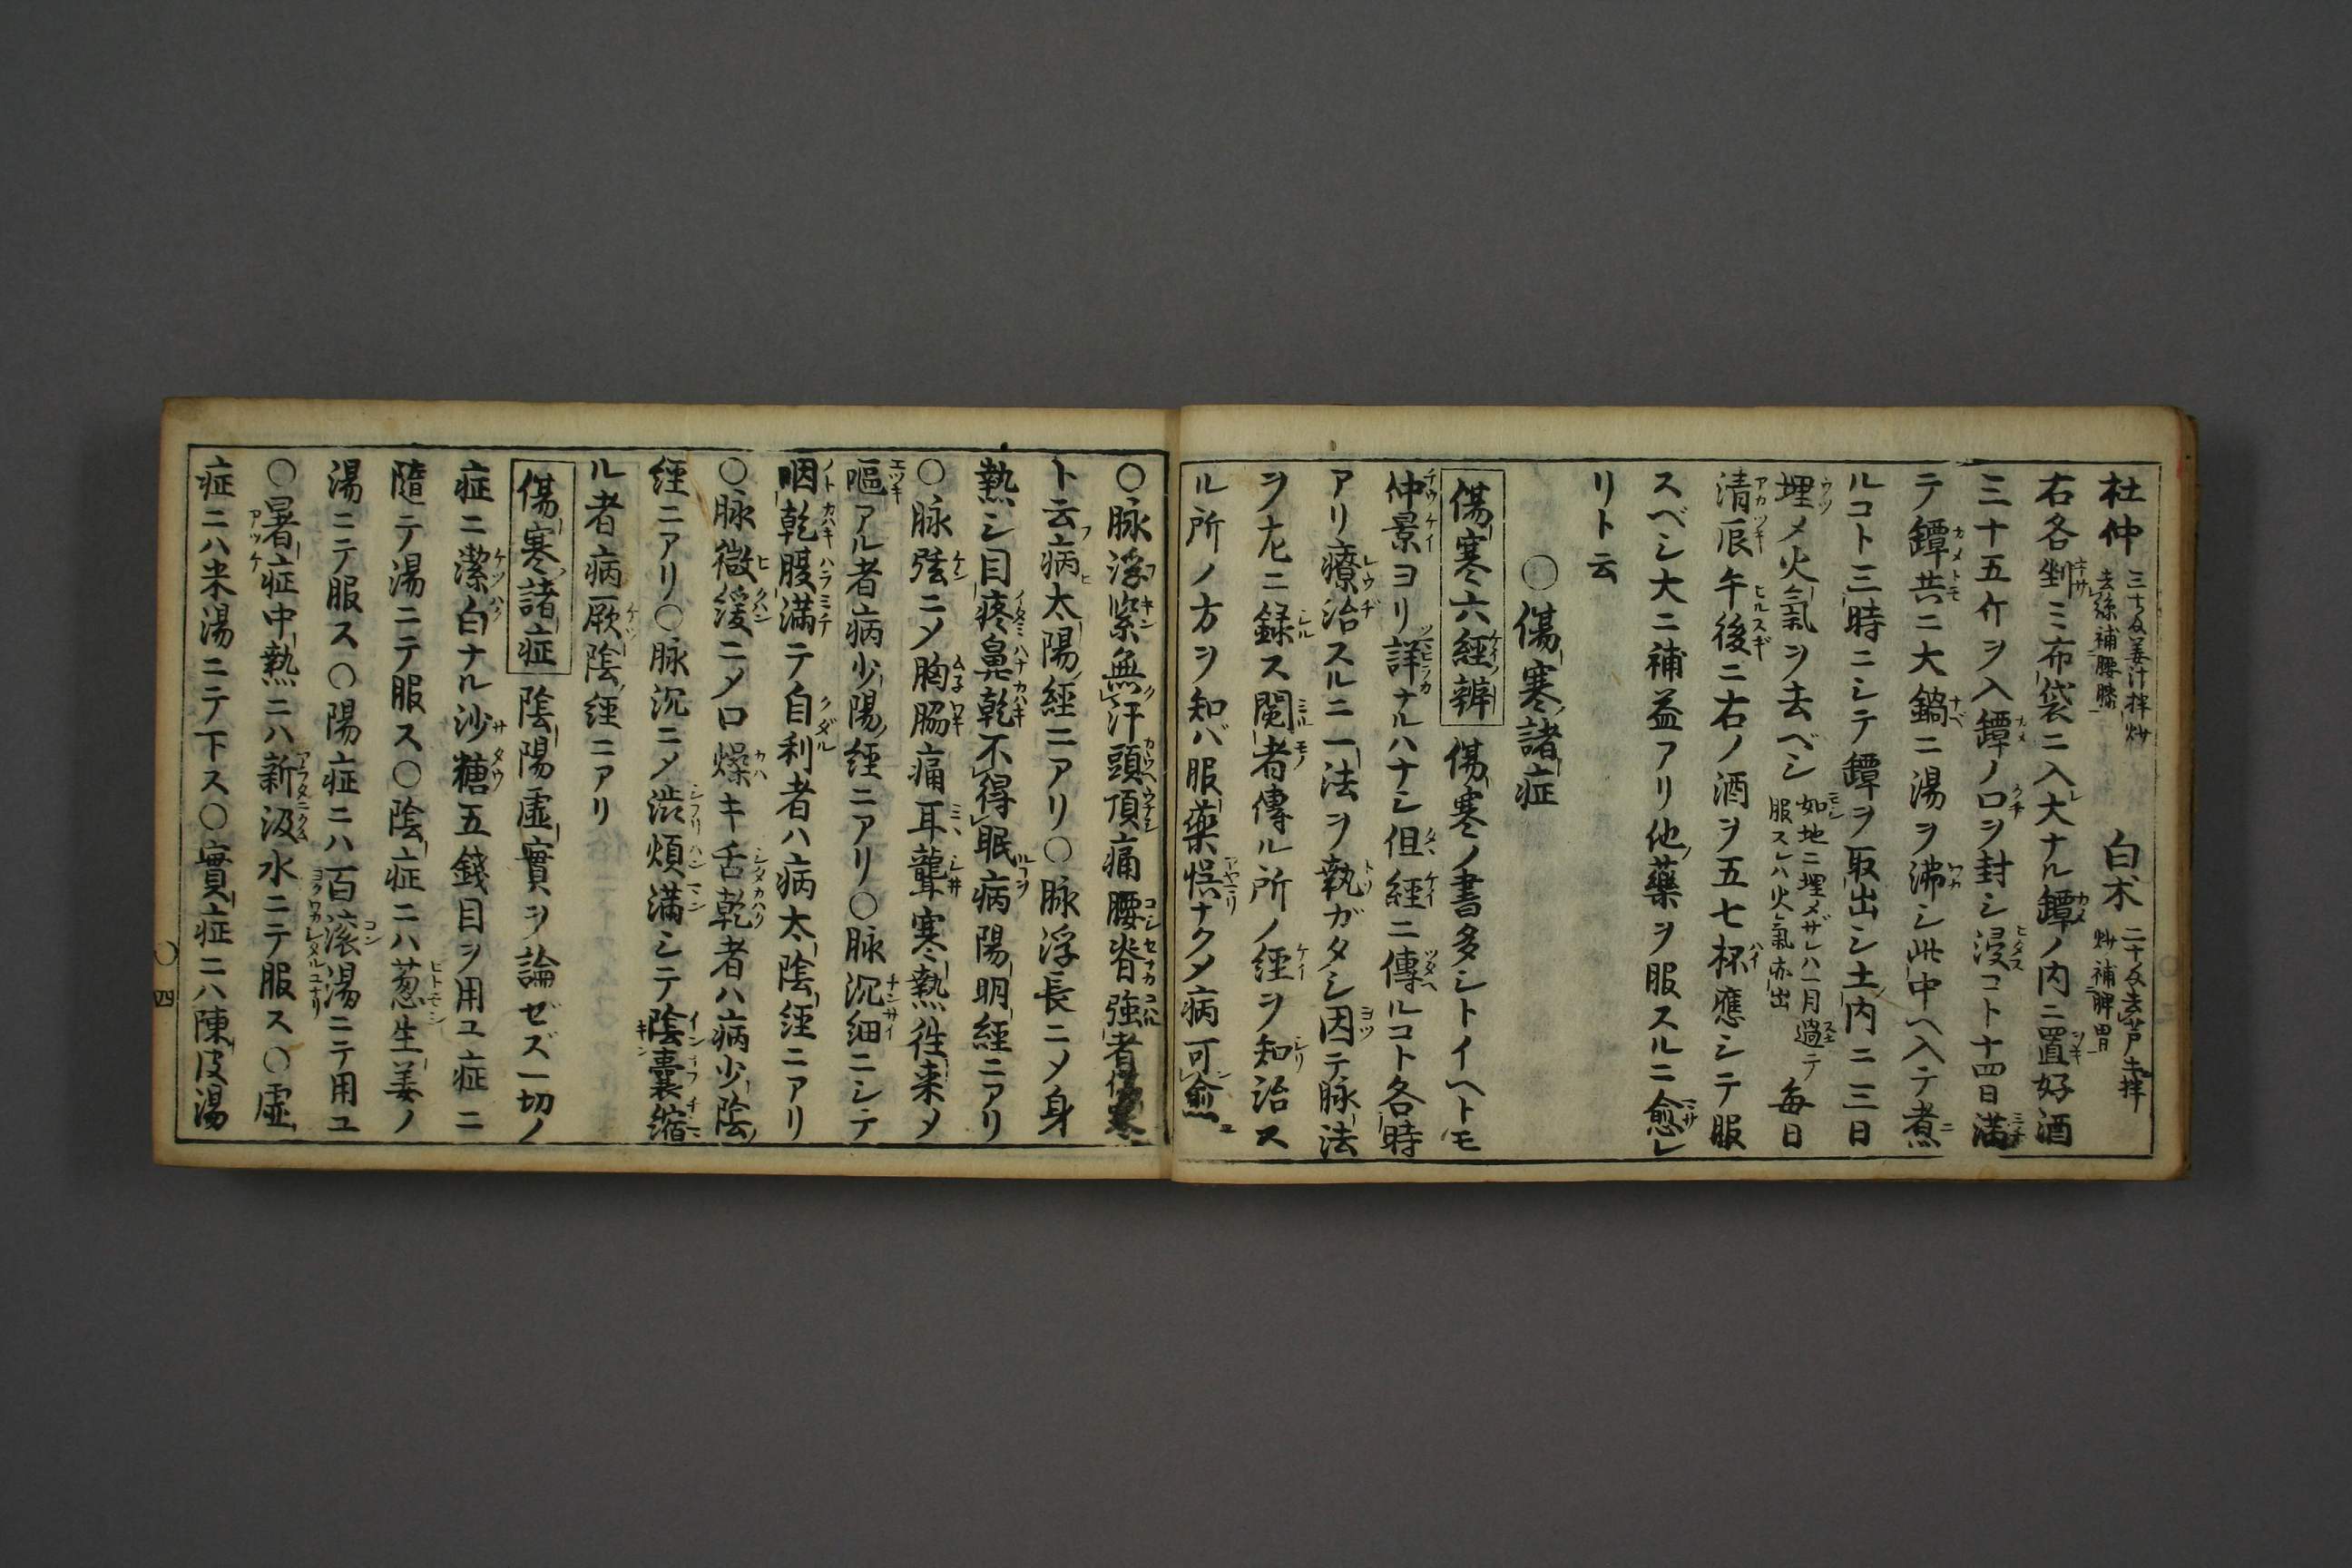 杜仲 三十匁姜汁拌炒去絲補腰膝 白朮 二十匁去芦土拌炒補脾胃
右各剉ミ布袋ニ入大ナル罈ノ内ニ置好酒
三十五斤ヲ入罈ノ口ヲ封シ浸コト十四日満
テ罈共ニ大鍋ニ湯ヲ沸シ此中ヘ入テ煮
ルコト三時ニシテ罈ヲ取出シ土内ニ三日
埋メ火氣ヲ去ベシ 如地ニ埋メザレハ一月過テ服スレハ火氣亦出 毎日
清辰午後ニ右ノ酒ヲ五七杯應シテ服
スベシ大ニ補益アリ他藥ヲ服スルニ愈レ
リト云
〇傷寒諸症
傷寒六經辨 傷寒ノ書多シトイヘトモ
仲景ヨリ詳ナルハナシ但經ニ傳ルコト各時
アリ療治スルニ一法ヲ執ガタシ因テ脉法
ヲ左ニ録ス閲者傳ル所ノ經ヲ知治ス
ル所ノ方ヲ知バ服藥悞ナクメ病可愈
〇脉浮緊無汗頭頂痛腰脊強者傷寒
ト云病太陽經ニアリ〇脉浮長ニメ身
熱シ目疼鼻乾不得眠病陽明經ニアリ
〇脉弦ニメ胸脇痛耳聾寒熱徃来メ
嘔アル者病少陽經ニアリ〇脉沉細ニシテ
咽乾腹満テ自利者ハ病太陰經ニアリ
〇脉微緩ニメ口燥キ舌乾者ハ病少陰
經ニアリ〇脉沉ニメ渋煩満シテ陰嚢縮
ル者病厥陰經ニアリ
傷寒諸症 陰陽虚實ヲ論ゼズ一切ノ
症ニ潔白ナル沙糖五錢目ヲ用ユ症ニ
隨テ湯ニテ服ス〇陰症ニハ葱生姜ノ
湯ニテ服ス〇陽症ニハ百滚湯ニテ用ユ
〇暑症中熱ニハ新汲水ニテ服ス〇虚
症ニハ米湯ニテ下ス〇實症ニハ陳皮湯
〇四